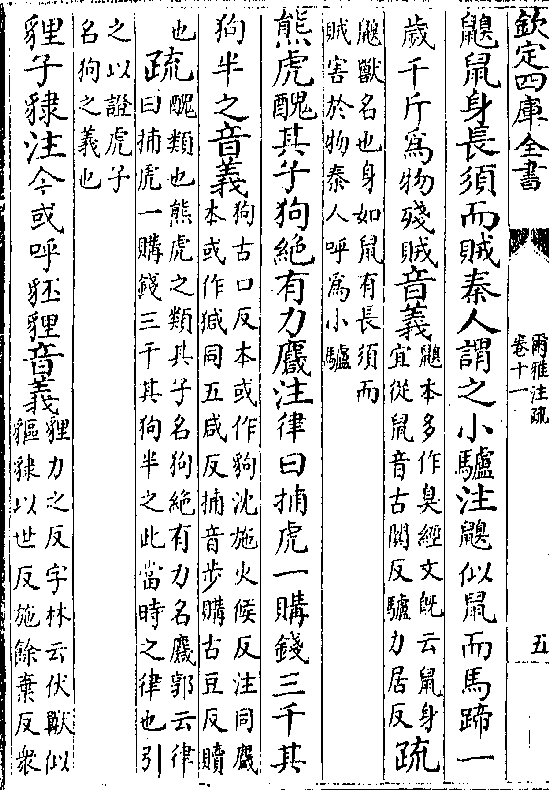 欽定四庫全書
爾雅注疏
卷十一
五
鼳鼠身長須而賊秦人謂之小驢注鼳似鼠而馬蹄一
歲千斤為物殘賊音義
鼳本多作臭經文既云鼠身
宜從鼠音古闃反驢力居反
疏
鼳獸名也身如鼠有長須而
賊害於物秦人呼為小驢
熊虎醜其子狗絶有力麙注律曰捕虎一購錢三千其
狗半之音義
狗古口反本或作豿沈施火候反注同麙
本或作㺂同五咸反捕音步購古豆反贖
也
疏
醜類也熊虎之類其子名狗絶有力名麙郭云律
曰捕虎一購錢三千其狗半之此當時之律也引
之以證虎子
名狗之義也
貍子隸注今或呼豾貍音義
貍力之反字林云伏獸似
貙隸以世反施餘棄反衆